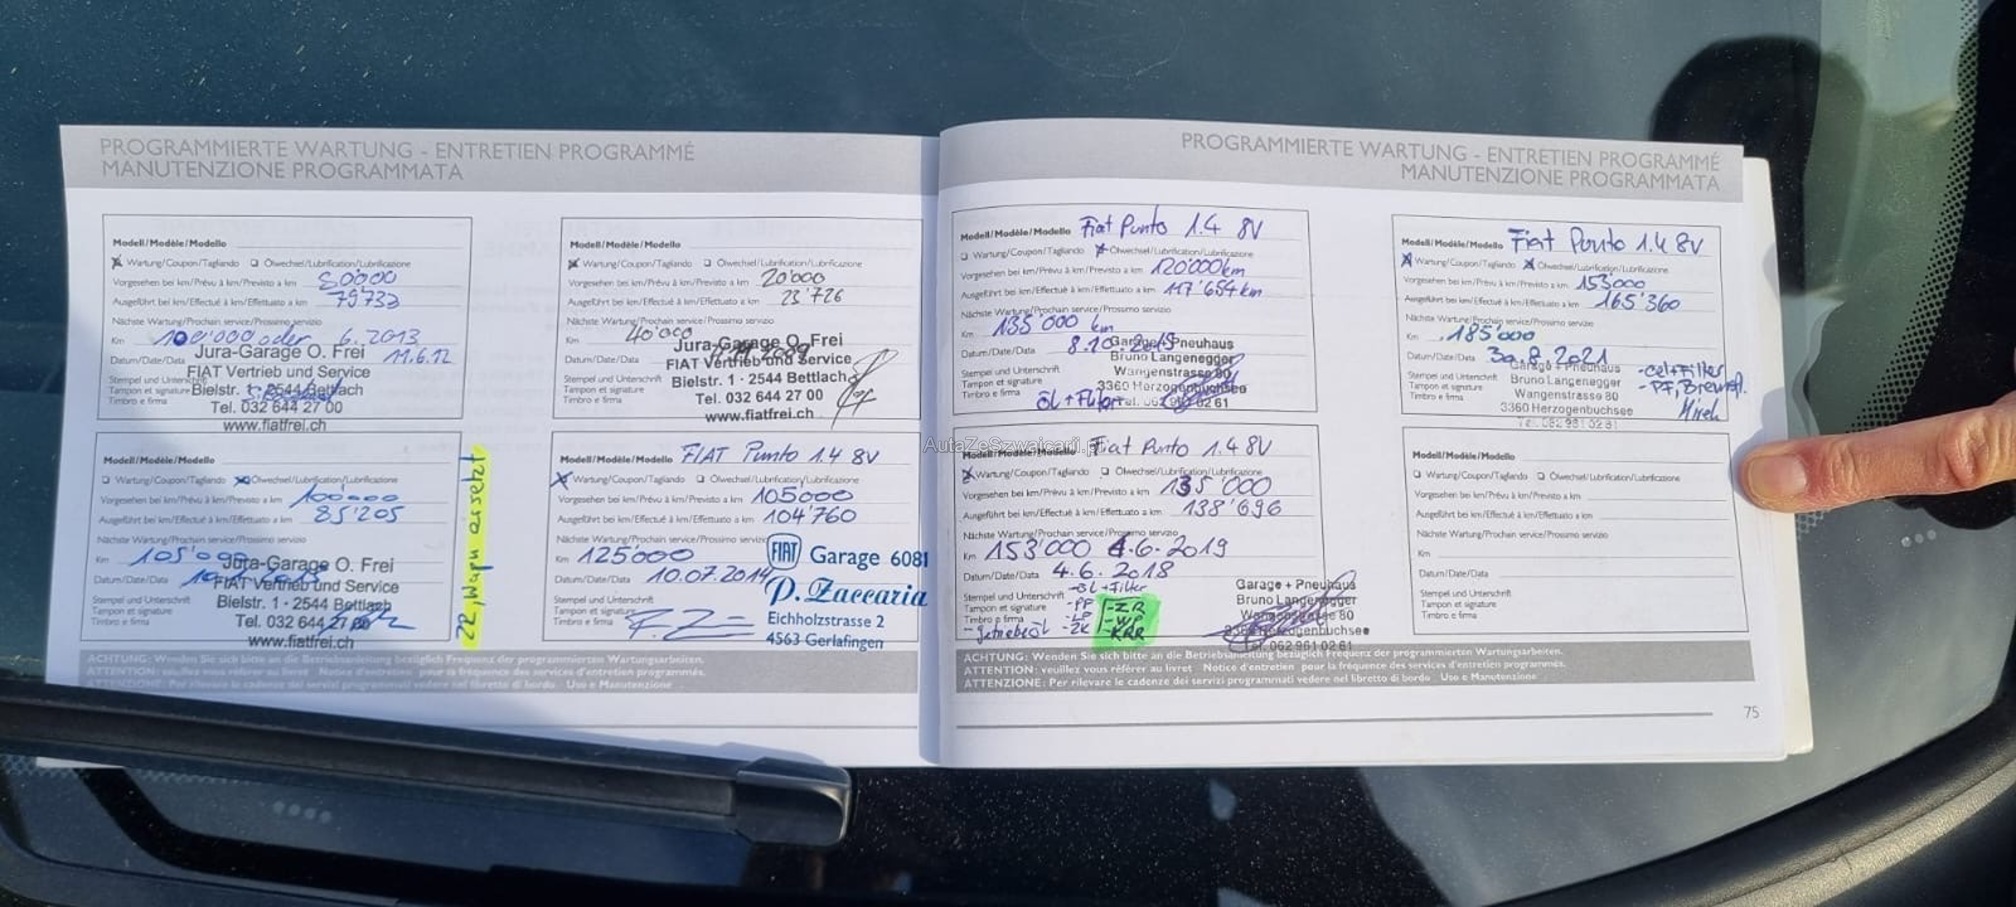 PROGRAMMIERTE WARTUNG - ENTRETIEN PROGRAMMÉ
MANUTENZIONE PROGRAMMATA
Modell/Modèle/Modello
Wartung/Coupon/Tagliando Ölwechsel/Lubrification/Lubrificazione
Vorgesehen bei km/Prévu à km/Previsto a km 80'000
Ausgeführt bei km/Effectué à km/Effettuato a km 79'733
Nächste Wartung/Prochain service/Prossimo servizio
Km 100'000 oder 6.2013
Datum/Date/Data 11.6.12
Stempel und Unterschrift
Tampon et signature
Timbro e firma
Jura-Garage O. Frei
FIAT Vertrieb und Service
Bielstr. 1 · 2544 Bettlach
Tel. 032 644 27 00
www.fiatfrei.ch
Modell/Modèle/Modello
Wartung/Coupon/Tagliando Ölwechsel/Lubrification/Lubrificazione
Vorgesehen bei km/Prévu à km/Previsto a km 20'000
Ausgeführt bei km/Effectué à km/Effettuato a km 23'726
Nächste Wartung/Prochain service/Prossimo servizio
Km 40'000
Datum/Date/Data
Stempel und Unterschrift
Tampon et signature
Timbro e firma
Jura-Garage O. Frei
FIAT Vertrieb und Service
Bielstr. 1 · 2544 Bettlach
Tel. 032 644 27 00
www.fiatfrei.ch
Modell/Modèle/Modello
Wartung/Coupon/Tagliando Ölwechsel/Lubrification/Lubrificazione
Vorgesehen bei km/Prévu à km/Previsto a km 100000
Ausgeführt bei km/Effectué à km/Effettuato a km 85'205
Nächste Wartung/Prochain service/Prossimo servizio
Km 105'000
Datum/Date/Data
Stempel und Unterschrift
Tampon et signature
Timbro e firma
Jura-Garage O. Frei
FIAT Vertrieb und Service
Bielstr. 1 · 2544 Bettlach
Tel. 032 644 27 00
www.fiatfrei.ch
ZR, Wapu ersetzt
Modell/Modèle/Modello FIAT Punto 1.4 8V
Wartung/Coupon/Tagliando Ölwechsel/Lubrification/Lubrificazione
Vorgesehen bei km/Prévu à km/Previsto a km 105000
Ausgeführt bei km/Effectué à km/Effettuato a km 104'760
Nächste Wartung/Prochain service/Prossimo servizio
Km 125'000
Datum/Date/Data 10.07.2014
Stempel und Unterschrift
Tampon et signature
Timbro e firma
FIAT Garage 6081
P. Zaccaria
Eichholzstrasse 2
4563 Gerlafingen
ACHTUNG: Wenden Sie sich bitte an die Betriebsanleitung bezüglich Frequenz der programmierten Wartungsarbeiten.
ATTENTION: veuillez vous référer au livret Notice d'entretien pour la fréquence des services d'entretien programmés.
ATTENZIONE: Per rilevare le cadenze dei servizi programmati vedere nel libretto di bordo Uso e Manutenzione
PROGRAMMIERTE WARTUNG - ENTRETIEN PROGRAMMÉ
MANUTENZIONE PROGRAMMATA
Modell/Modèle/Modello Fiat Punto 1.4 8V
Wartung/Coupon/Tagliando Ölwechsel/Lubrification/Lubrificazione
Vorgesehen bei km/Prévu à km/Previsto a km 120'000km
Ausgeführt bei km/Effectué à km/Effettuato a km 117'654km
Nächste Wartung/Prochain service/Prossimo servizio
Km 135'000 km
Datum/Date/Data
Stempel und Unterschrift
Tampon et signature
Timbro e firma
Garage + Pneuhaus
Bruno Langenegger
Wangenstrasse 80
3360 Herzogenbuchsee
Tel. 062 961 02 61
Modell/Modèle/Modello Fiat Punto 1.4 8V
Wartung/Coupon/Tagliando Ölwechsel/Lubrification/Lubrificazione
Vorgesehen bei km/Prévu à km/Previsto a km 153000
Ausgeführt bei km/Effectué à km/Effettuato a km 165'360
Nächste Wartung/Prochain service/Prossimo servizio
Km 185'000
Datum/Date/Data 30.8.2021
Stempel und Unterschrift
Tampon et signature
Timbro e firma
Garage + Pneuhaus
Bruno Langenegger
Wangenstrasse 80
3360 Herzogenbuchsee
Tel. 062 961 02 61
AutaZeSzwajcarii.pl
Modell/Modèle/Modello Fiat Punto 1.4 8V
Wartung/Coupon/Tagliando Ölwechsel/Lubrification/Lubrificazione
Vorgesehen bei km/Prévu à km/Previsto a km 135'000
Ausgeführt bei km/Effectué à km/Effettuato a km 138'696
Nächste Wartung/Prochain service/Prossimo servizio
Km 153'000 4.6.2019
Datum/Date/Data 4.6.2018
Stempel und Unterschrift
Tampon et signature
Timbro e firma
-Öl+Filter
-PP
-LP
-ZK
-Getriebeöl
-ZR
-WP
-KRR
Garage + Pneuhaus
Bruno Langenegger
Wangenstrasse 80
3360 Herzogenbuchsee
Tel. 062 961 02 61
Modell/Modèle/Modello
Wartung/Coupon/Tagliando Ölwechsel/Lubrification/Lubrificazione
Vorgesehen bei km/Prévu à km/Previsto a km
Ausgeführt bei km/Effectué à km/Effettuato a km
Nächste Wartung/Prochain service/Prossimo servizio
Km
Datum/Date/Data
Stempel und Unterschrift
Tampon et signature
Timbro e firma
ACHTUNG: Wenden Sie sich bitte an die Betriebsanleitung bezüglich Frequenz der programmierten Wartungsarbeiten.
ATTENTION: veuillez vous référer au livret Notice d'entretien pour la fréquence des services d'entretien programmés.
ATTENZIONE: Per rilevare le cadenze dei servizi programmati vedere nel libretto di bordo Uso e Manutenzione
75